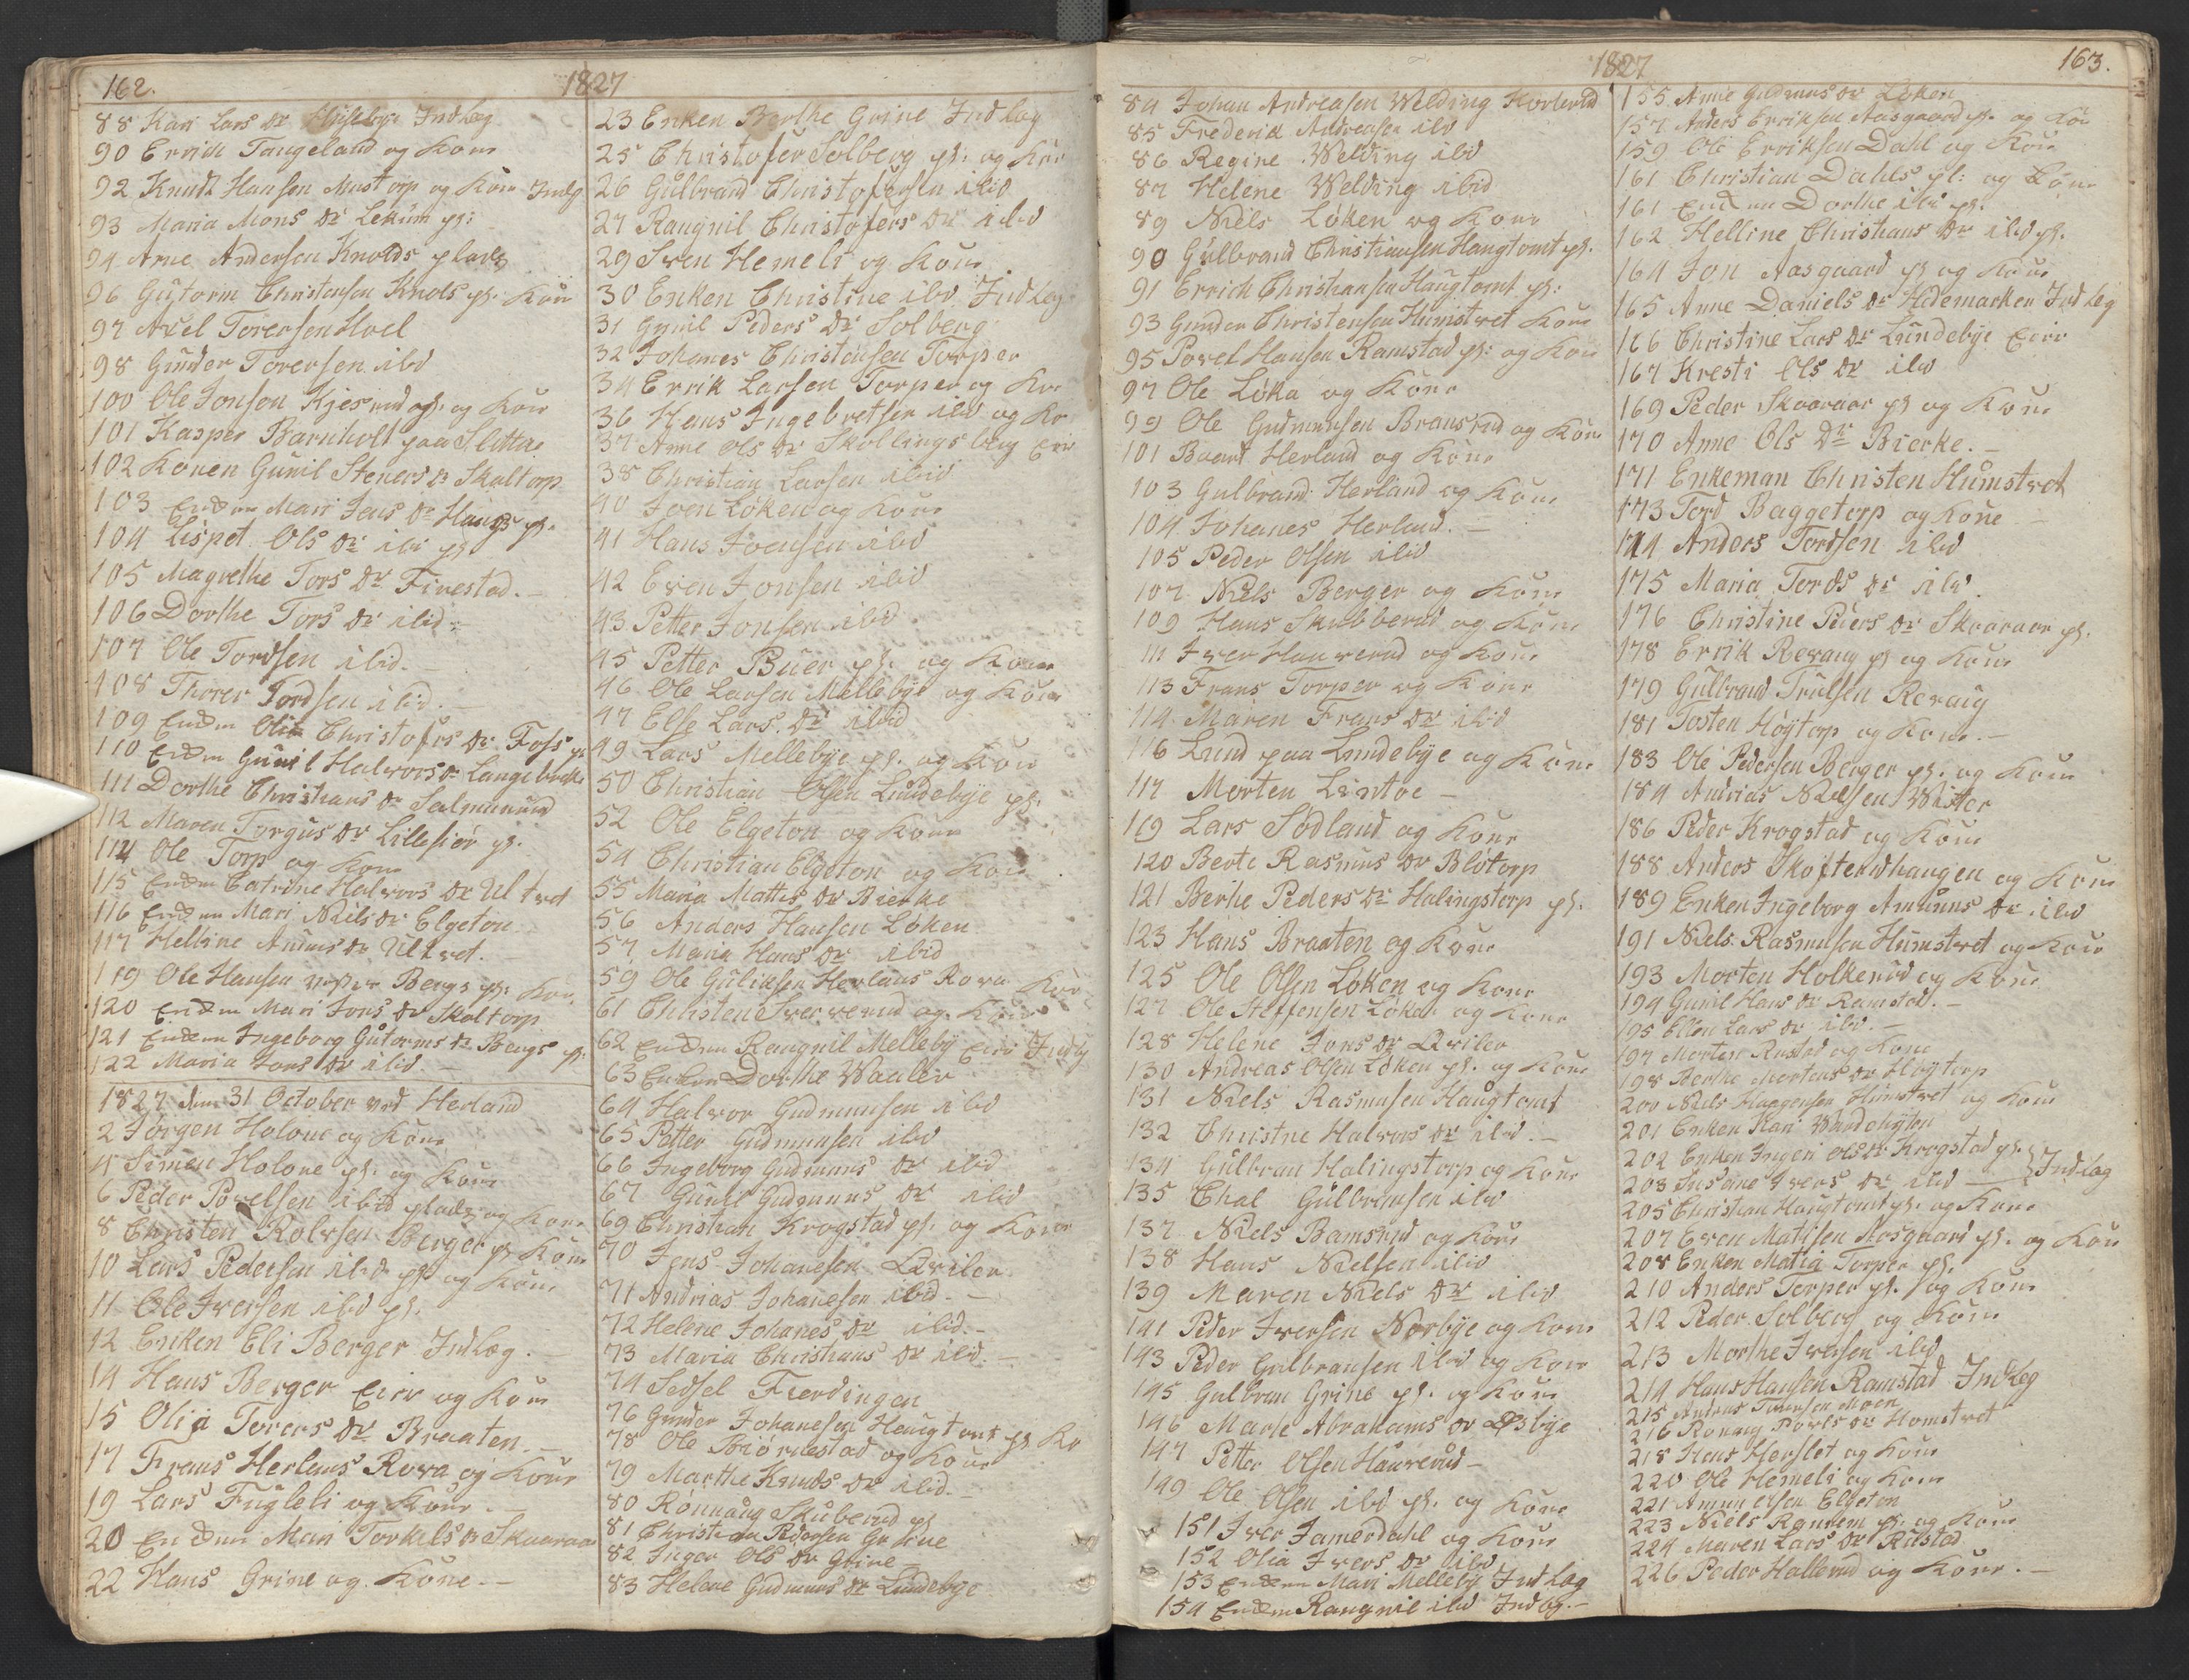 162.
1827
88 Kari Lars Dr Indlæg
90 Errich Tangeland og Kone
92 Knudt Hansen Mustorp og Kone Indlg
93 Maria Mons Dr Lekum pl:
94 Arne Andersen Knolds plads
96 Gutorm Christensen Knols pl. Kone
97 Axel Torersen Hoel
98 Gunder Torersen ibd
100 Ole Jonson Kjesrud pl. og Kone
101 Kasper Barnholt paa Slittere
102 Konen Gunil Steners Dr Skaltorp
103 Enken Mari Jens Dr Haugs pl.
104 Lispet Ols Dr ibi pl
105 Magrethe Tors Dr Finestad.
106 Dorthe Tors Dr ibid
107 Ole Tordsen ibid.
108 Thorer Tordsen ibid.
109 Enken Olia Christofers Dr Foss pl
110 Enken Gunil Halvors Dr Langebrekke
111 Dorthe Christians Dr Salmunrud
112 Maren Torgus Dr Lillesier pl.
114 Ole Torp og Kone
115 Enken Catrine Halvors Dr Ultvet
116 Enken Mari Niels Dr Elgeton
117 Helline Amuns Dr Ultvet.
119 Ole Hansen Berge pl: Kone
120 Enken Mari Jons Dr Skaltorp
121 Enken Ingeborg Gutorms Dr Bergs pl:
122 Maria Jons Dr ibid.
1827 den 31 October ved Herland
2 Jörgen Holone og Kone
4 Simen Holone pl. og Kone
6 Peder Povelsen ibid plads og Kone
8 Christen Rolvsen Berger pl Kone
10 Lars Pedersen ibid pl og Kone
11 Ole Iversen ibd pl.
12 Enken Eli Berger Indlæg.
14 Hans Berger Eier og Kone
15 Olia Torers Dr Braaten.
17 Frans Herlans Rova og Kone
19 Lars Fugleli og Kone.
20 Enken Mari Torkels Dr Skaaraar
22 Hans Grine og Kone.
23 Enken Berthe Grine Indlæg
25 Christofer Solberg pl: og Kone
26 Gulbrand Christofersen ibid
27 Raugnil Christofers Dr ibid
29 Sven Hemeli og Kone
30 Enken Christine ibd Indlæg
31 Gunil Peders Dr Solberg
32 Johanes Christensen Torper
34 Errik Larsen Torper og Ko
36 Hans Ingebretsen ibd og Ko
37 Anne Ols Dr Skollingsberg Eier
38 Christian Larsen ibid
40 Joen Löken og Kone
41 Hans Joensen ibd
42 Even Jonsen ibid
43 Petter Jonsen ibid
45 Petter Buer pl. og Kone
46 Ole Larsen Mellebye og Kone
47 Else Lars Dr ibid
49 Lars Mellebye pl. og Kone
50 Christian Olsen Lundebye pl.
52 Ole Elgeton og Kone
54 Christian Elgeton og Kone
55 Maria Mattis Dr Bierke
56 Anders Hansen Löken
57 Maria Hans Dr ibid
59 Ole Guliksen Herlans Rova Kone
61 Christen Sververud og Kone
62 Enken Raugnil Melleby Eier Indlg
63 Enken Dorthe Waaler
64 Halvor Gudmunsen ibid
65 Petter Gudmunsen ibd
66 Ingeborg Gudmuns Dr ibid
67 Gunil Gudmuns Dr ibid
69 Christian Krogstad pl. og Kone
70 Jens Johanesen Qviler
71 Andrias Johanesen ibid.
72 Helene Johanes Dr ibid.
73 Maria Christians Dr ibid.
74 Sedsel Fierdingen
76 Gunder Johanesen Haugtomt pl Ko
78 Ole Biörnestad og Kone
79 Marthe Knuds Dr ibid.
80 Rönnaug Skuberud pl
81 Christian Pedersen Grine
82 Inger Ols Dr Grine
83 Helene Gudmuns Dr Lundebye
1827
163.
84 Johan Andreasen Welding
85 Frederik Andreasen ibd
86 Regine Welding ibid
87 Helene Welding ibid
89 Niels Löken og Kone
90 Gulbrand Christiansen Haugtomt pl.
91 Errich Christiansen Haugtomt pl:
93 Gunder Christensen Humstvet Kone
95 Povel Hansen Ramstad pl: og Kone
97 Ole Löka og Kone
99 Ole Gudmunsen Bransrud og Kone
101 Baard Herland og Kone
103 Gulbrand Herland og Kone
104 Johanes Herland.
105 Peder Olsen ibid
107 Niels Berger og Kone
109 Hans Skubberud og Kone
111 Iver Haurerud og Kone
113 Frans Torper og Kone
114 Maren Frans Dr ibid
116 Lund paa Lundebye og Kone
117 Morten Lintoe
119 Lars Södland og Kone
120 Berte Rasmus Dr Blötorp
121 Berthe Peders Dr Halingstorp pl.
123 Hans Braaten og Kone
125 Ole Olsen Löken og Kone
127 Ole Steffensen Löken og Kone
128 Helene Jons Dr Qviler
130 Andreas Olsen Löken pl. og Kone
131 Niels Rasmusen Haugtomt
132 Christne Halvors Dr ibid.
134 Gulbran Halingstorp og Kone
135 Chal Gulbransen ibid
137 Niels Bamsrud og Kone
138 Hans Nielsen ibid
139 Maren Niels Dr ibid
141 Peder Iversen Norbye og Kone
143 Peder Gulbransen ibid og Kone
145 Gulbran Grine pl. og Kone
146 Marte Abrahams Dr Æsbye
147 Petter Olsen Haurerud
149 Ole Olsen ibd pl. og Kone
151 Iver Jamerdahl og Kone
152 Olia Ivers Dr ibd
153 Enken Mari Melleby Indlæg
154 Enken Raugnil ibd Indlæg.
155 Anne Gudmus Dr Löken
157 Anders Erriksen Aasgaard pl. og Ko
159 Ole Erriksen Dahl og Kone
161 Christian Dahls pl: og Kone
161 Enken Dorthe ibi pl.
162 Helline Christians Dr ibd pl.
164 Jon Aasgaard pl og Kone
165 Anne Daniels Dr Hedemarken Indlæg
166 Christine Lars Dr Lundebye Eier
167 Kresti Ols Dr ibd
169 Peder Skaaraar pl og Kone
170 Anne Ols Dr Bierke.
171 Enkeman Christen Humstvet
173 Tord Baggetorp og Kone
174 Anders Tordsen ibid
175 Maria Tords Dr ibd.
176 Christine Peders Dr Skaaraar pl.
178 Errik Revaug pl og Kone
179 Gulbrand Trulsen Revaug
181 Tosten Höytorp og Kone.
183 Ole Pedersen Berger pl. og Kone
184 Andrias Nielsen Wister
186 Peder Krogstad og Kone
188 Anders Skofterudhaugen og Kone
189 Enken Ingeborg Amunns Dr ibid
191 Niels Rasmusen Humstvet og Kone
193 Morten Holkerud og Kone
194 Gunil Hans Dr Ramstad.
195 Ellen Lars Dr ibd.
197 Morten Rustad og Kone
198 Berthe Mortens Dr Höytorp
200 Niels Haagensen Humstvet og Kone
201 Enken Kari
202 Enken Ingeri Ols Dr Krogstad pl. } Indlæg
203 Susane Ivers Dr ibd
205 Christian Haugtomt pl. og Kone
207 Even Matisen Aasgaard pl. og Kone
208 Enken Matia Torper pl.
210 Anders Torper pl. og Kone
212 Peder Solberg og Kone
213 Morthe Iversen ibd
214 Hans Hansen Ramstad Indlæg
215 Andreas Moen
216 Ronaug Povels Dr Homstvet
218 Hans Herslet og Kone
220 Ole Hemeli og Kone
221 Amun Olsen Elgeton
223 Niels Ramsem pl. og Kone
224 Maren Lars Dr Rustad
226 Peder Hallerud og Kone.